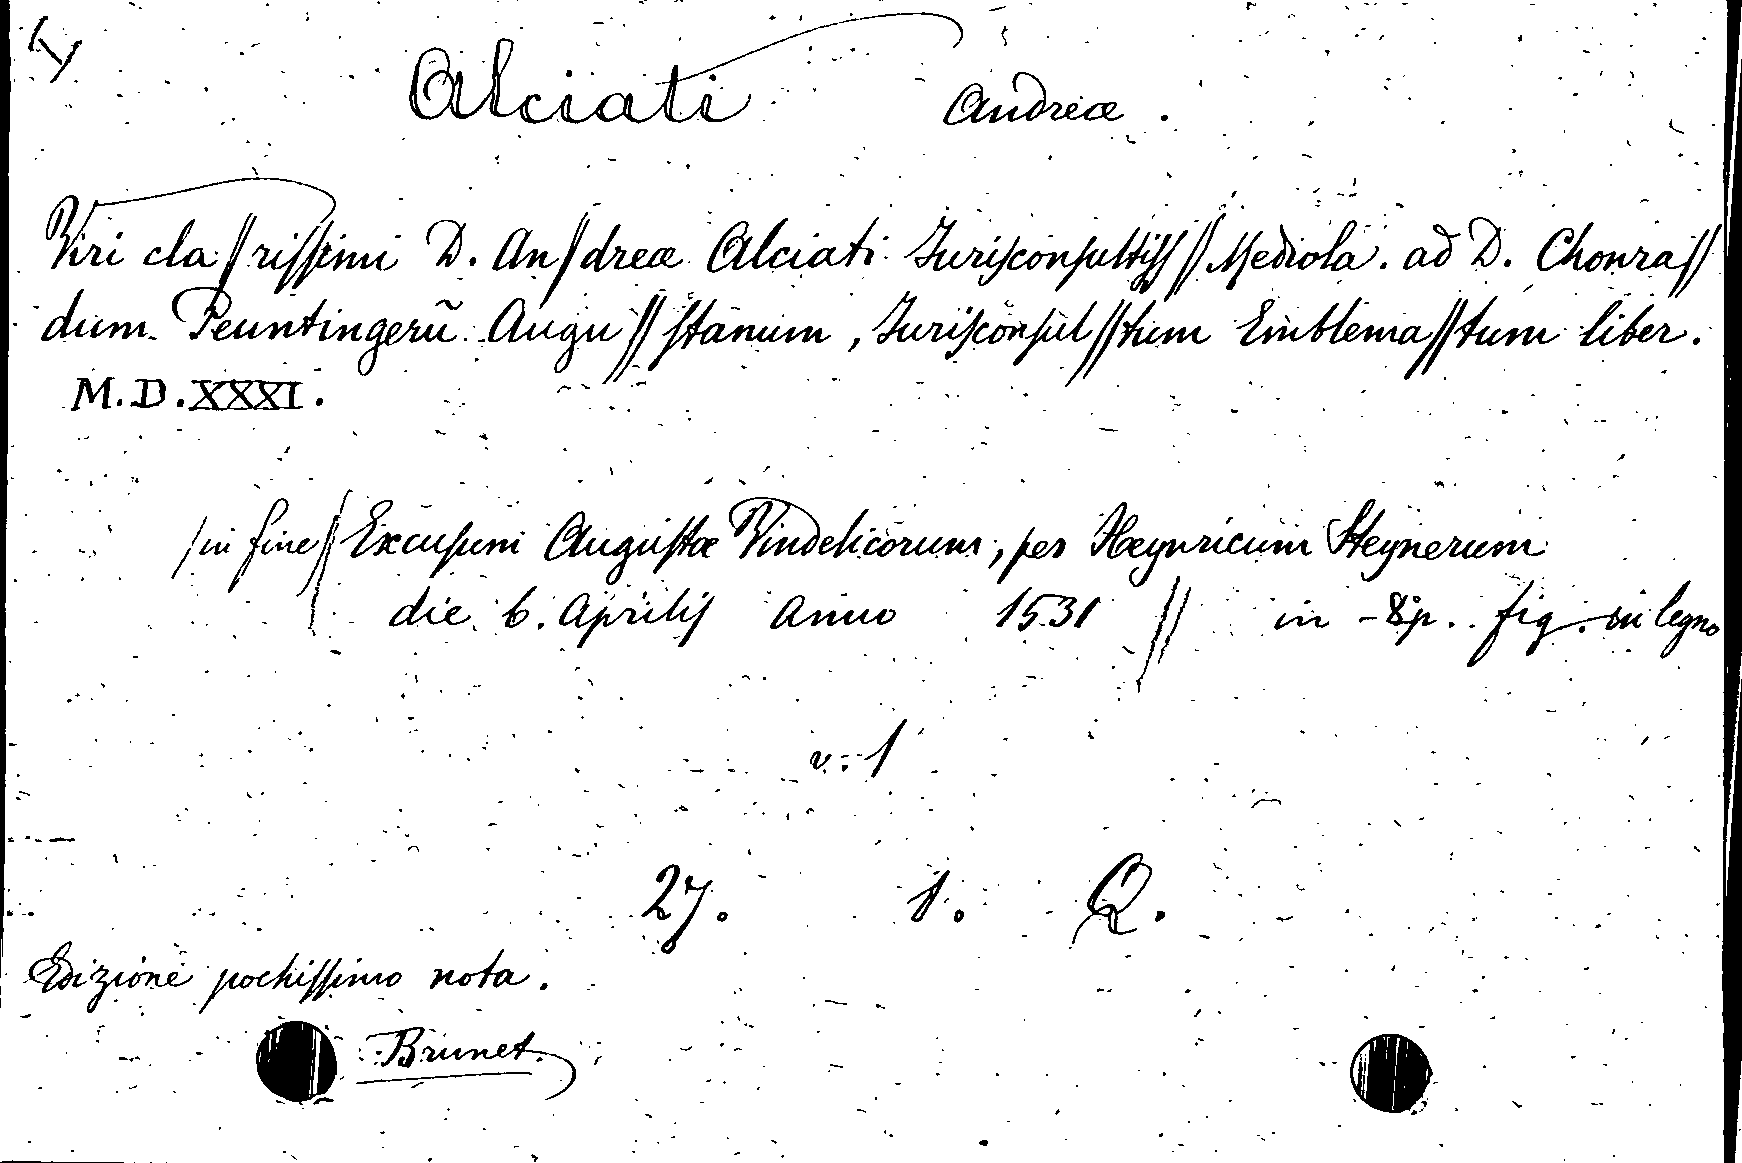 Alciati Andreæ.
Viri cla//rissimi D. An//dreæ Alciati Jurisconsultiss//Mediola. ad D. Chonra//
dum Peuntingerũ Augu//stanum, Jurisconsul//tum Emblema//tum liber.
M.D.XXXI.
/in fine// Excusum Augustæ Vindelicorum, per Heynricum Steynerum
die 6. Aprilis Anno 1531 // in -8p. fig. in legno
v. 1
27. 1. Q.
Edizione pochissimo nota.
Brunet.